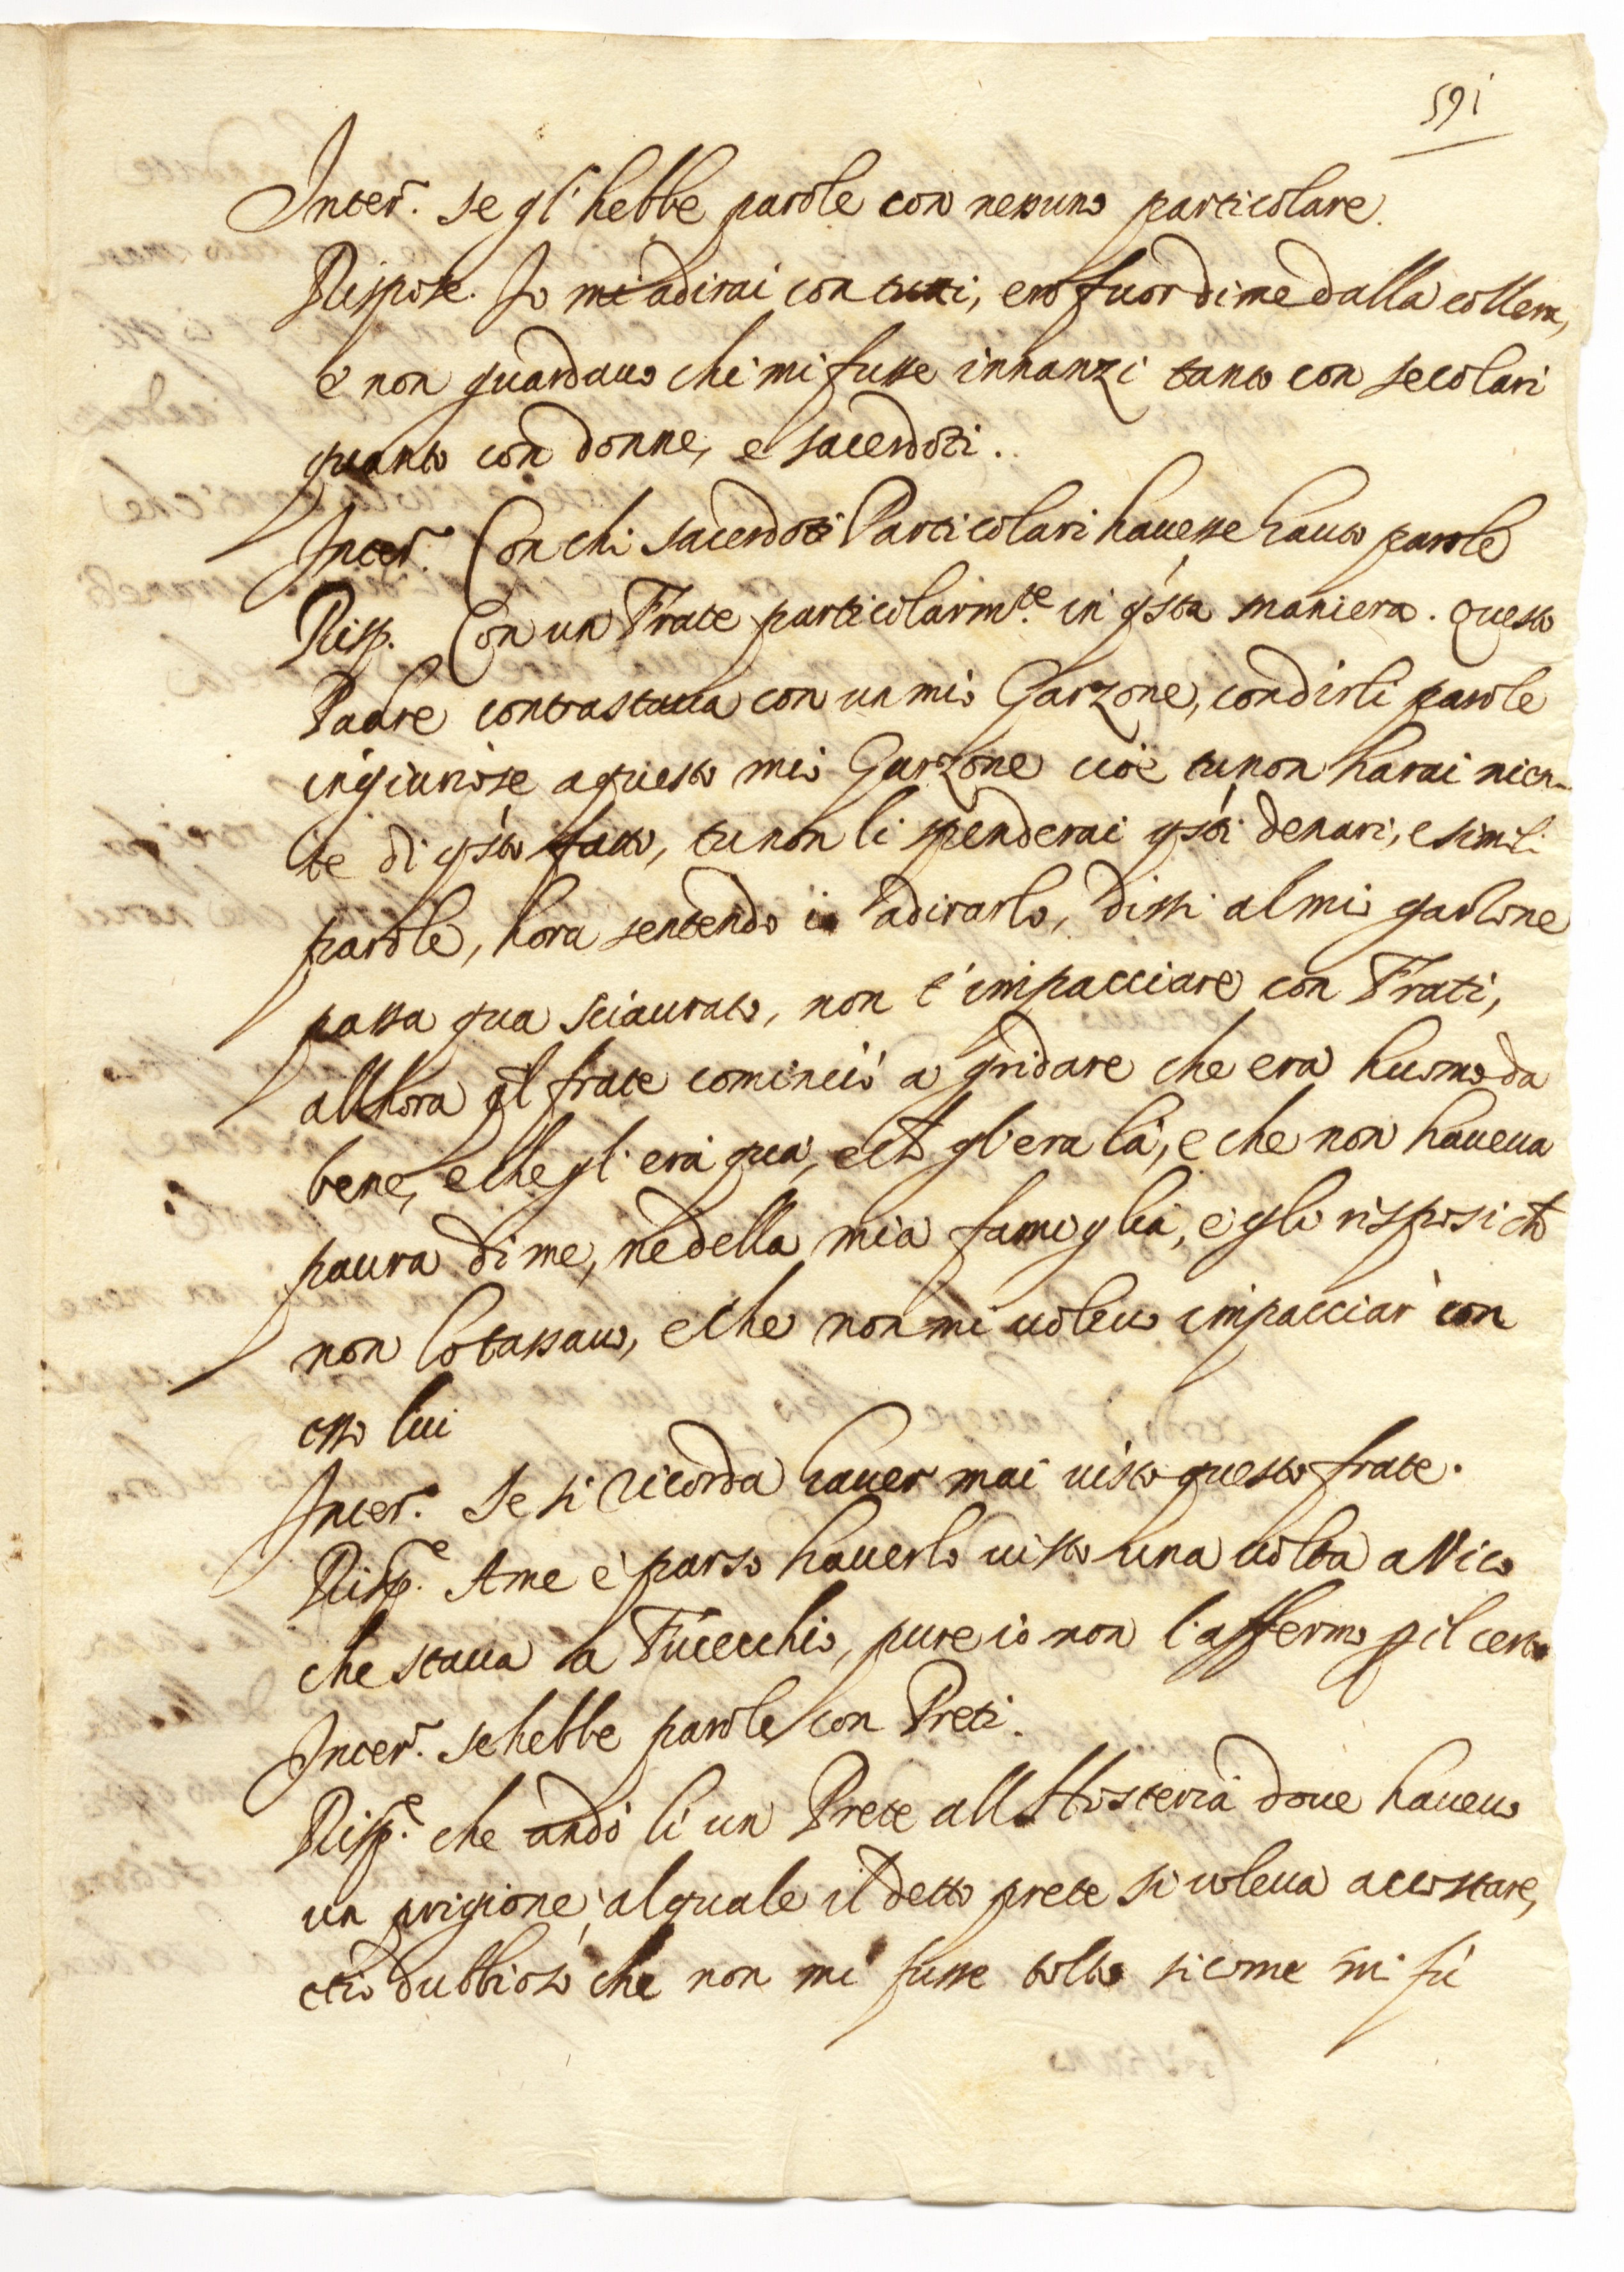 591
Inter.^r se gl'hebbe parole con nessuno particolare.
Rispose. Io mi adirai con tutti, ero fuor di me dalla collera,
e non guardauo chi mi fusse innanzi tanto con secolari
quanto con donne, e sacerdoti.
Inter.^r Con chi sacerdoti Particolari hauesse hauto parole
Risp. Con un Frate particolarm.^te in q'sta maniera. Questo
Padre contrastaua con un mio Garzone, con dirli parole
ingiuriose a questo mio Garzone cioè tu non harai nien-
te di q'sto fatto, tu non li spenderai q'sti denari, e simili
parole, hora sentendo io adirarlo, dissi al mio garzone
passa qua sciaurato, non t'impacciare con Frati,
allhora q'l frate cominciò a gridare che era huomo da
bene, e che gl'era qua, e ch' gl'era là, e che non haueua
paura di me, ne della mia famiglia, e gli risposi ch'
non lo tassauo, e che non mi uoleuo impacciar con
esso lui
Inter.^r Se si ricorda hauer mai uisto questo frate.
Risp.^e A me è parso hauerlo uisto una uolta a Vico
che staua a Fucecchio, pure io non l'affermo p il certo
Inter.^r se hebbe parole con Preti.
Risp.^e che andò lì un Prete all Hosteria doue haueuo
un prigione, al quale il detto prete si uoleua accostare,
et io dubbioso che non mi fusse tolto si come mi fù